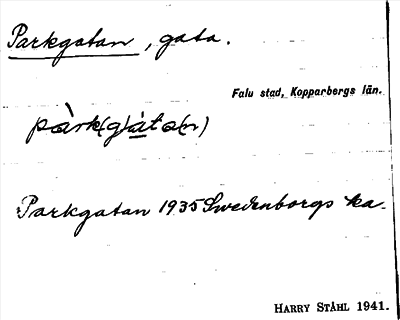 Parkgatan, gata.
Falu stad, Kopparbergs län.
pàrk(g)àta(n)
Parkgatan 1935 Swedenborgs ka.
HARRY STÅHL 1941.